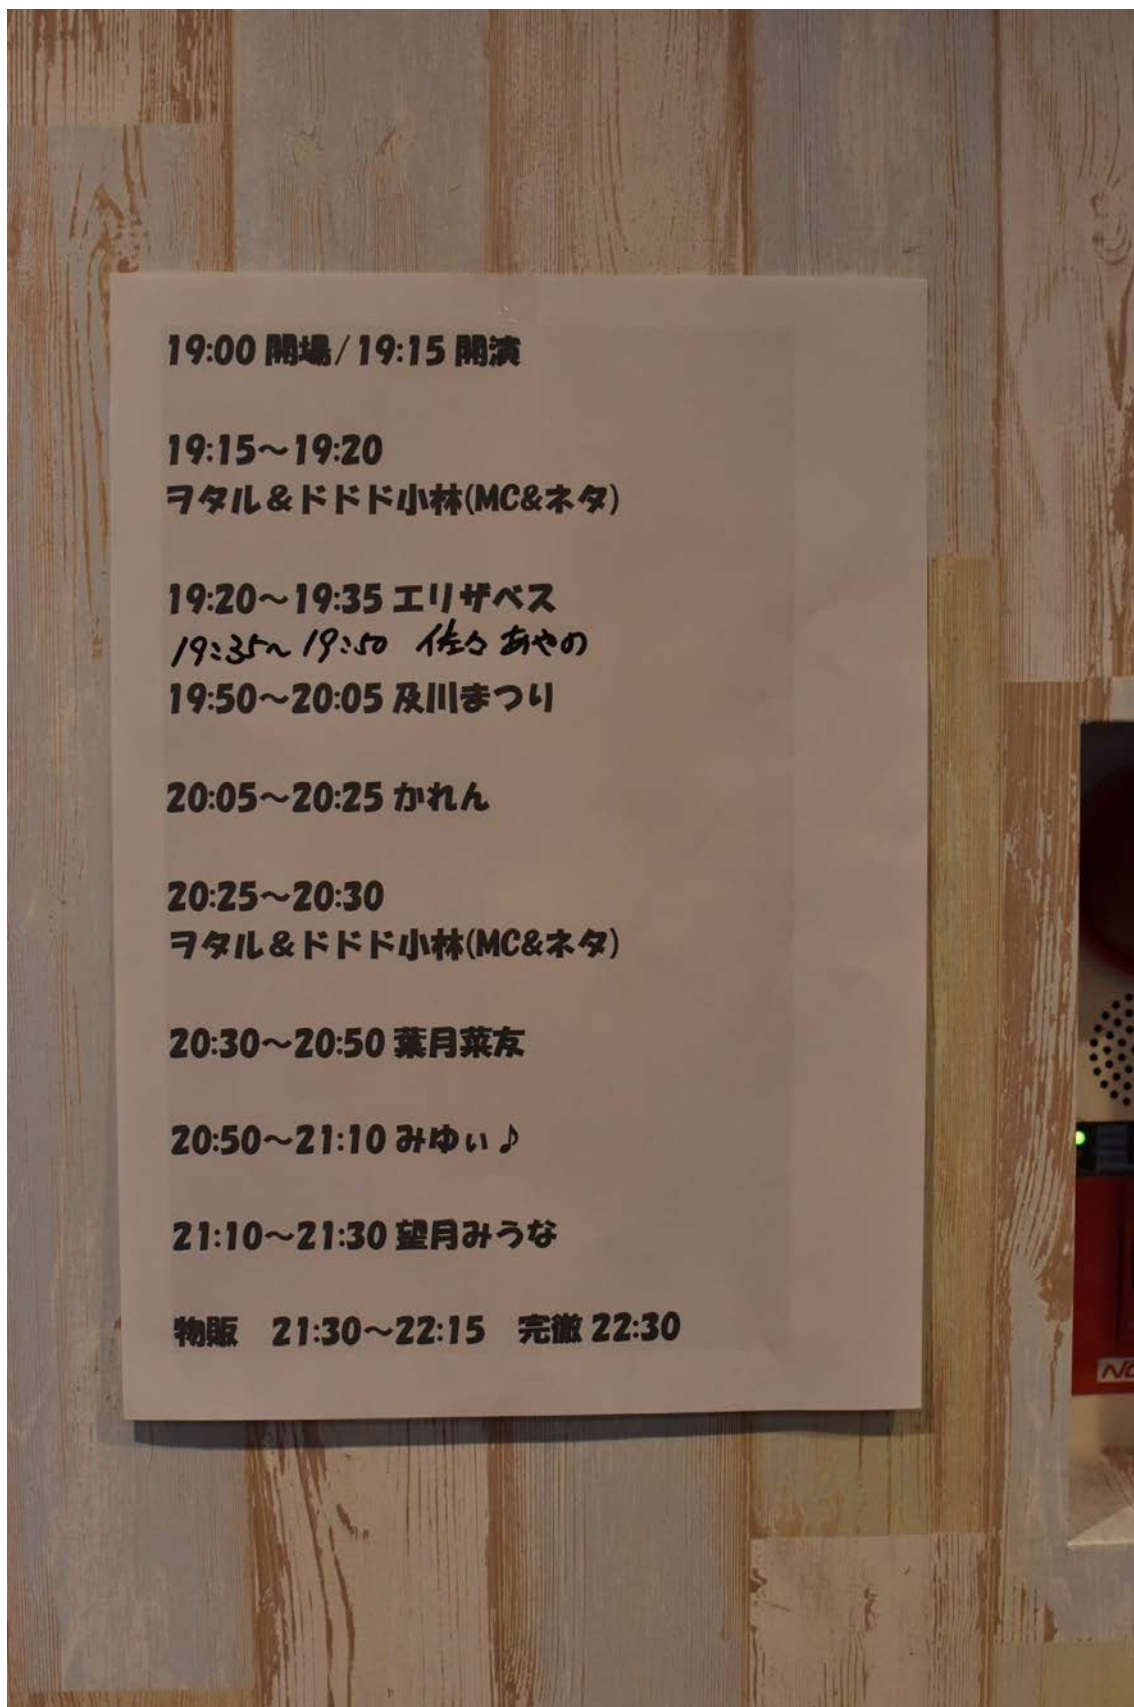 19:00 開場/19:15 開演
19:15～19:20
ヲタル&ドドド小林(MC&ネタ)
19:20～19:35 エリザベス
19:35～19:50 佐々あやの
19:50～20:05 及川まつり
20:05～20:25 かれん
20:25～20:30
ヲタル&ドドド小林(MC&ネタ)
20:30～20:50 葉月菜友
20:50～21:10 みゆぃ♪
21:10～21:30 望月みうな
物販　21:30～22:15　完徹 22:30